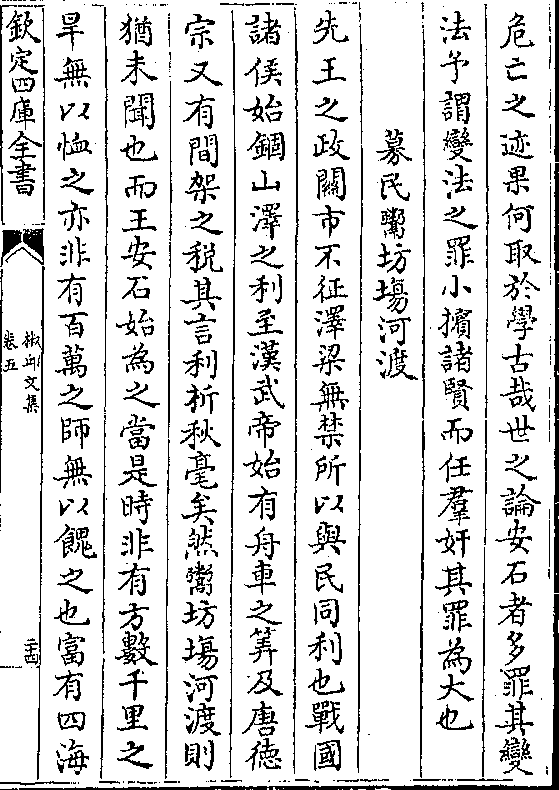 危亡之迹果何取於學古哉世之論安石者多罪其變
法予謂變法之罪小擯諸賢而任羣奸其罪為大也
募民鬻坊場河渡
先王之政關市不征澤梁無禁所以與民同利也戰國
諸侯始錮山澤之利至漢武帝始有舟車之筭及唐德
宗又有間架之税其言利析秋毫矣然鬻坊塲河渡則
猶未聞也而王安石始為之當是時非有方數千里之
旱無以恤之亦非有百萬之師無以餽之也富有四海
欽定四庫全書
椒邱文集
卷五
二十四